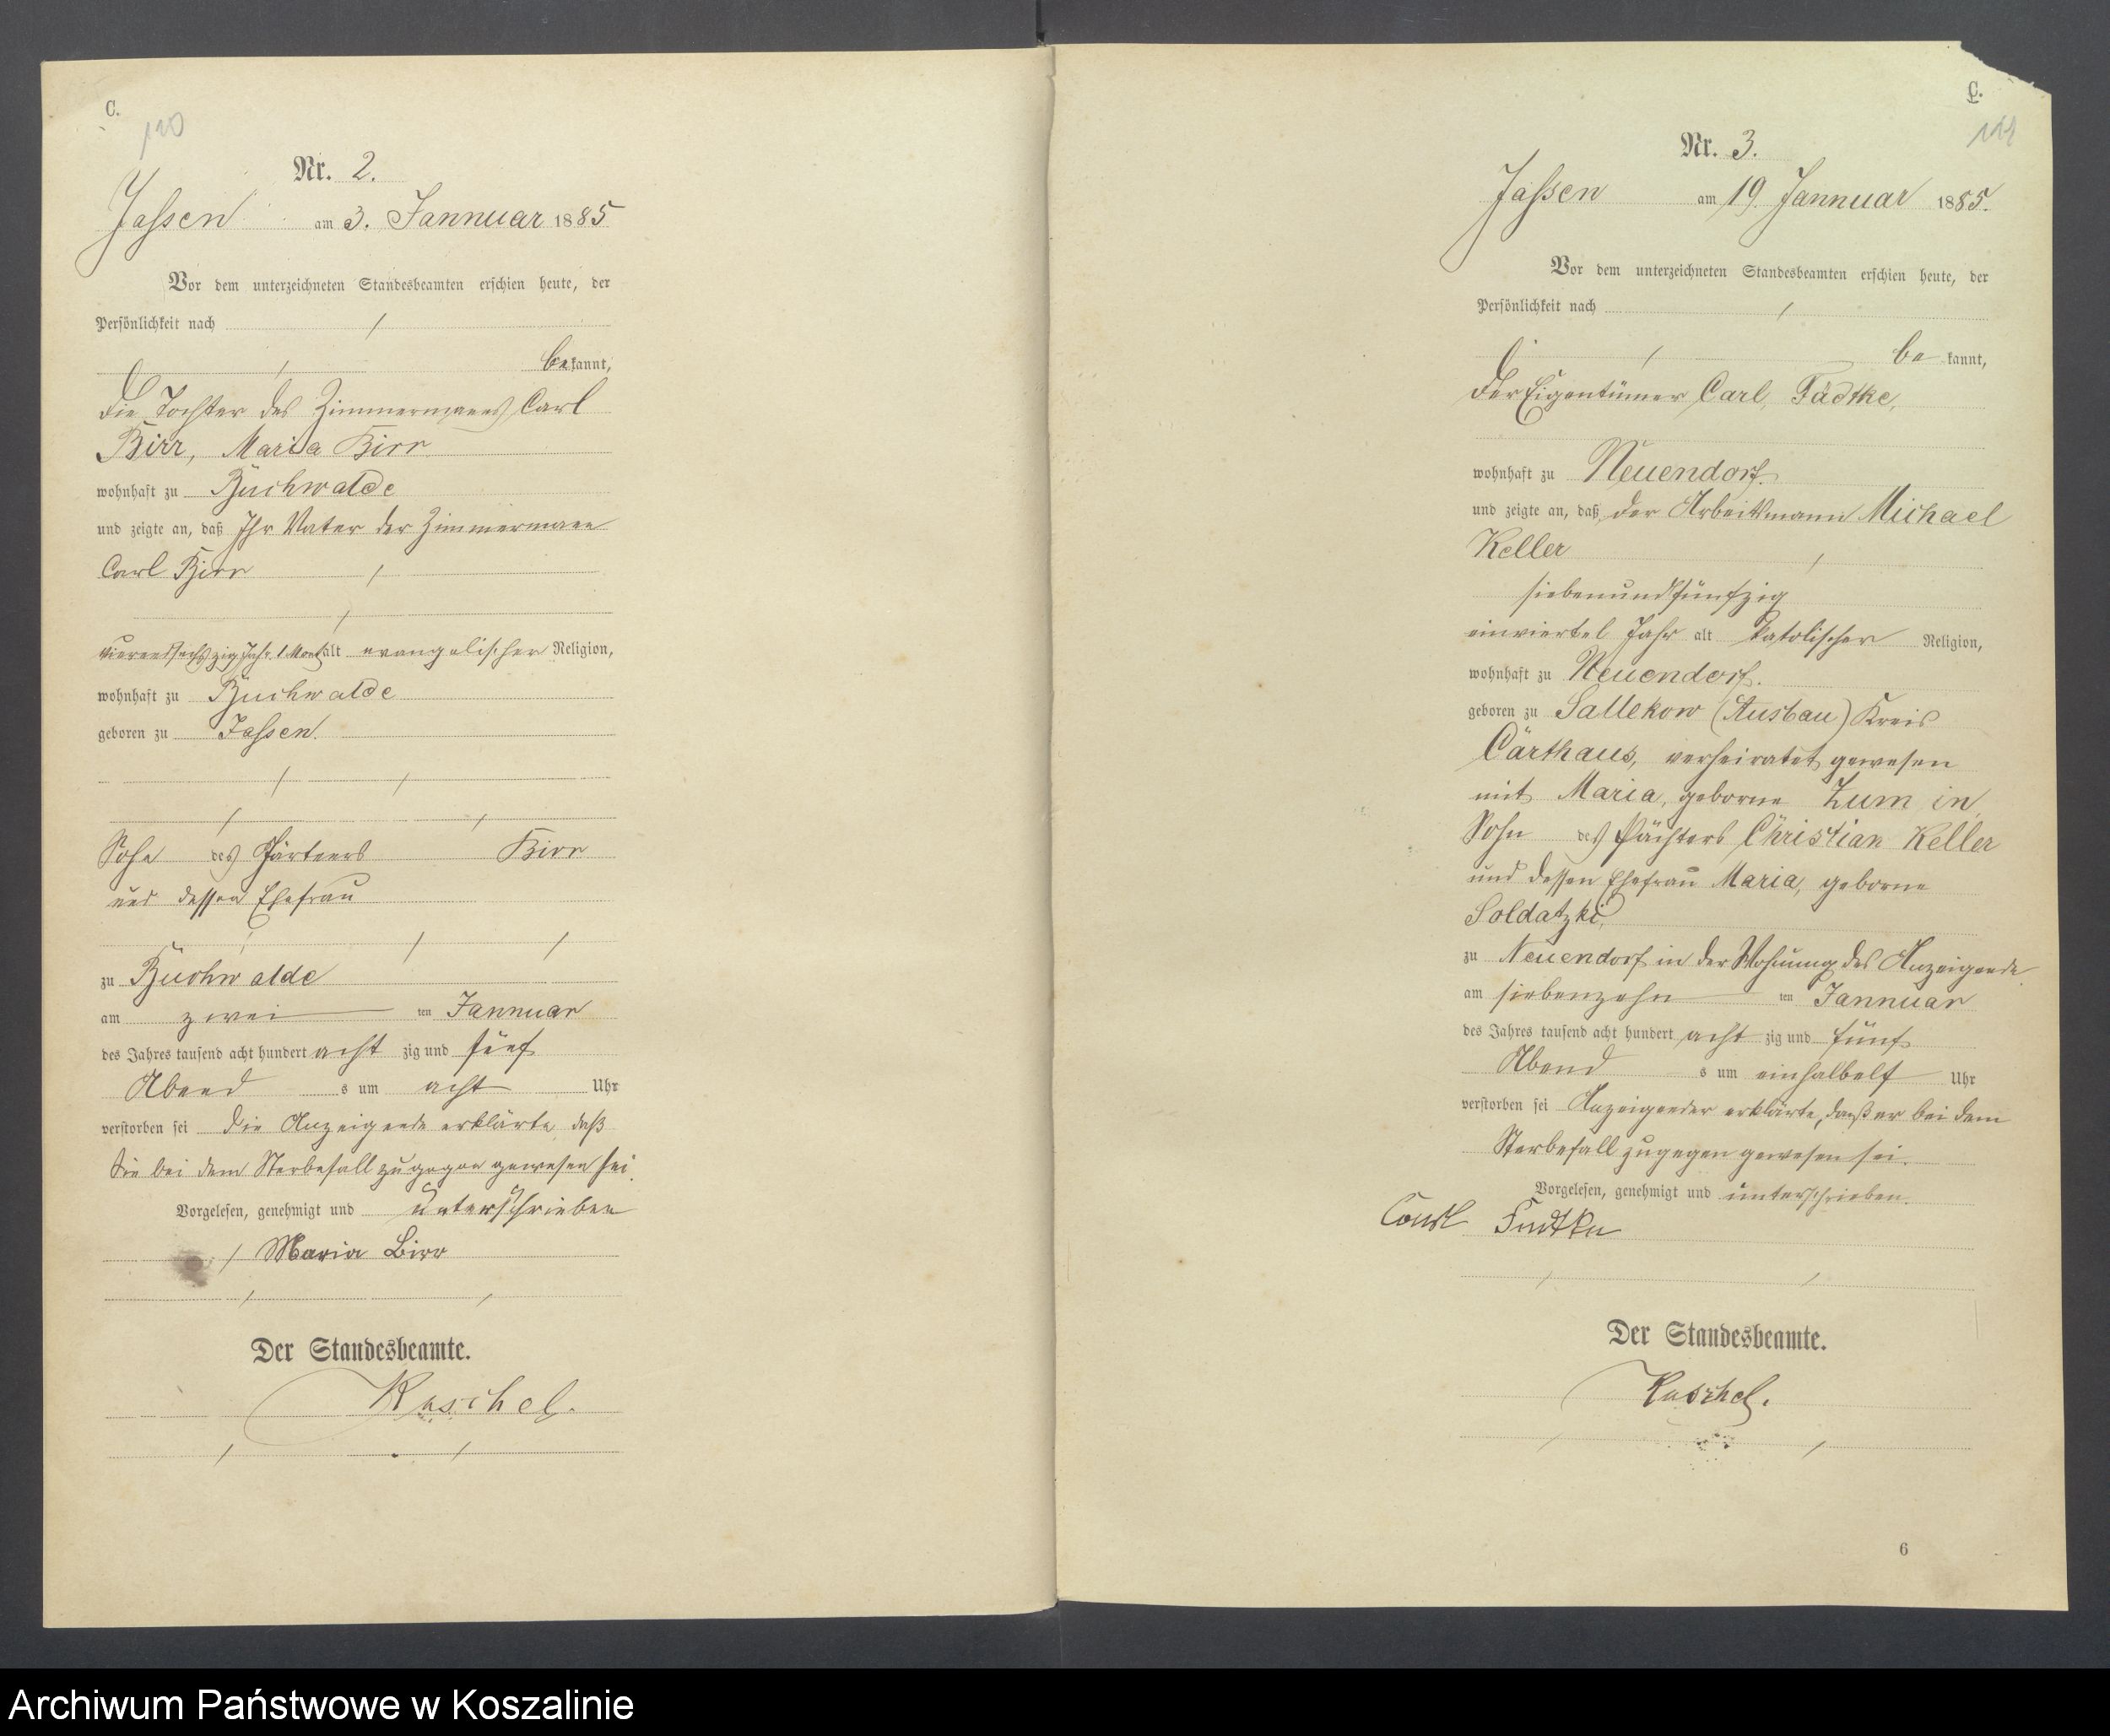 C.
120
Nr. 2.
Jassen am 3. Jannuar 1885
Vor dem unterzeichneten Standesbeamten erschien heute, der
Persönlichkeit nach
bekannt,
die Tochter des Zimmermanns Carl
Birr, Maria Birr
wohnhaft zu Buchwalde
und zeigte an, daß Ihr Vater der Zimmermann
Carl Birr
vierundsechszig Jahr 1 Monat alt evangelischer Religion,
wohnhaft zu Buchwalde
geboren zu Jassen.
Sohn des Gärtners Birr
und dessen Ehefrau
zu Buchwalde
am zwei ten Jannuar
des Jahres tausend acht hundert acht zig und fünf
Abend s um acht Uhr
verstorben sei die Anzeigende erklärte, daß
sie bei dem Sterbefall zugegen gewesen sei.
Vorgelesen, genehmigt und unterschrieben
Maria Birr
Der Standesbeamte.
Kuschel.
C.
Nr. 3.
Jassen am 19 Jannuar 1885.
Vor dem unterzeichneten Standesbeamten erschien heute, der
Persönlichkeit nach
be kannt,
der Eigentümer Carl Fädtke,
wohnhaft zu Neuendorf.
und zeigte an, daß der Arbeitsmann Michael
Keller
siebenundfünfzig
einviertel Jahr alt katolischer Religion,
wohnhaft zu Neuendorf.
geboren zu Sallekow (Ausbau) Kreis
Carthaus, verheiratet gewesen
mit Maria, geborne
Sohn des Pächters Christian Keller
und dessen Ehefrau Maria, geborne
Soldatzki,
zu Neuendorf in der Wohnung des Anzeigende
am siebenzehn ten Jannuar
des Jahres tausend acht hundert acht zig und fünf
Abend s um einhalbelf Uhr
verstorben sei Anzeigender erklärte, daß er bei dem
Sterbefall zugegen gewesen sei.
Vorgelesen, genehmigt und unterschrieben.
Der Standesbeamte.
Kuschel.
6
Archiwum Państwowe w Koszalinie